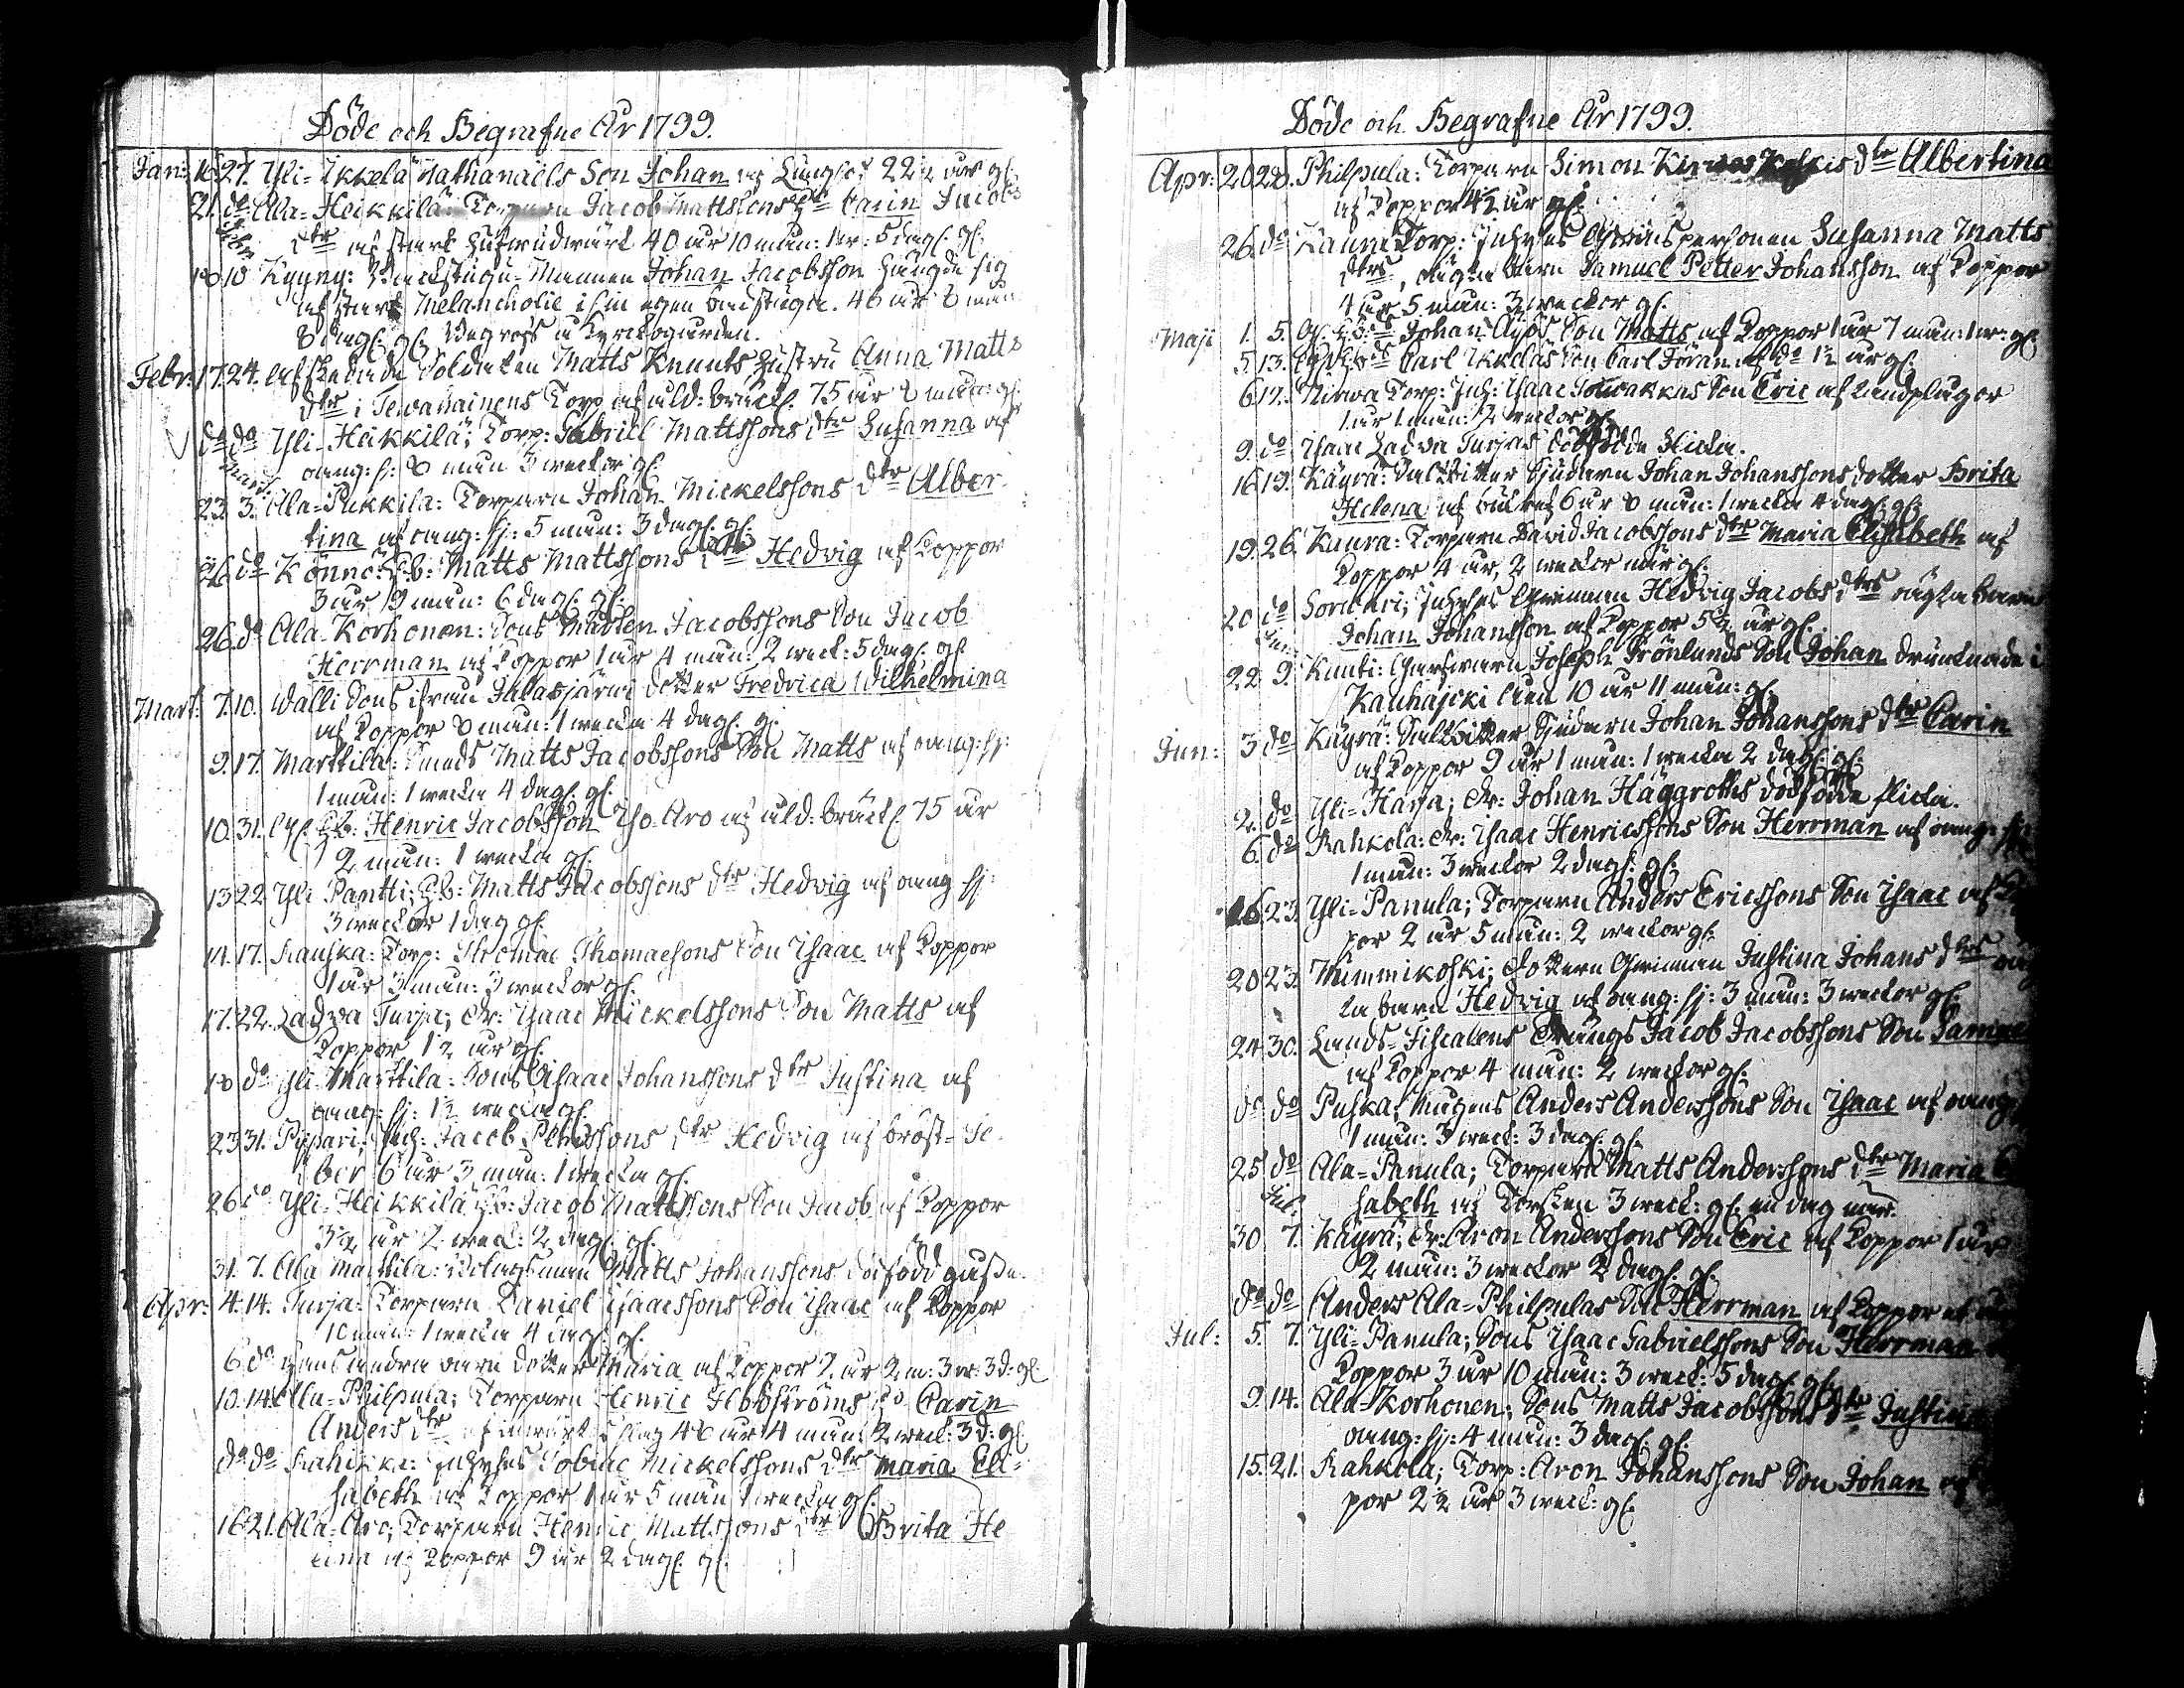 Döde och Begrafne År 1799.
Jan: 16. 27. Yli-Ikkela Nathanaëls Son Johan af Lungsot 22½ år gl.
21. do Ala-Heikkilä: Torparen Jacob Mattssons H. Carin Jacobs
dtr af stark hufwudwärk 40 år 10 mån: 1 w: 5 dag. gl.
10 Kyyny: Backstugu-Mannen Johan Jacobsson hängde sig
af stark Melancholie i sin egen badstuga. 46 år 8 mån
8 dag. gl. begrofs å Kyrkogården.
Febr: 17. 24. Afskedade Soldaten Matts Knuuts hustru Anna Matts
dtr i Tewanainens Torp af åld: bräckl. 75 år 8 mån: gl.
do do Yli-Heikkilä; Torp: Gabriell Mattssons dtr Susanna af
oang: sj: 8 mån 3 weckor gl.
23. 3. Ala-Pukkila: Torparen Johan Mickelssons dtr Alber-
tina af oang: sj: 5 mån: 3 dag. gl.
26. do Könnö: Matts Mattssons dtr Hedvig af Koppor
3 år 9 mån: 6 dag. gl.
26. do Ala-Korhonen: Sons Mårten Jacobssons Son Jacob
Herrman af Koppor 1 år 4 mån: 2 weck: 5 dag. gl.
Mart: 7. 10. Walli Sons ifrån Jalasjärwi dotter Fredrica Wilhelmina
af Koppor 8 mån: 1 wecka 4 dag. g.
9. 17. Marttila: Smeds Matts Jacobssons Son Matts af oang: sj:
1 mån: 1 wecka 4 dag. gl.
10. 31. Henric Jacobsson Iso-Aro af åld: bräckl. 75 år
2 mån: 1 wecka gl.
13 22 Yli Pantti; Matts Jacobssons dtr Hedvig af oang sj:
3 weckor 1 dag gl.
14. 17. Rauska: Torp: Thomae Thomaesons Son Isaac af Koppor
1 år 3 mån: 3 weckor gl.
17. 22. Ladva Turja; Isaac Mickelssons Son Matts af
Koppor 1½ år gl.
18 do Yli-Marttila: Sons Isaac Johanssons dtr Justina af
oang: sj: 1½ wecka gl.
23 31. Pippari; Jacob Pehrssons dtr Hedvig af bröst-fe-
ber 6 år 3 mån: 1 wecka gl.
26 do Yli-Heikkilä: Jacob Mattssons Son Jacob af Koppor
3½ år 2 weck: 2 dag. gl.
31. 7. Ala Marttila: Bolagsman Matts Johanssons dödfödd gosse.
Apr: 4. 14. Turja: Torparen Daniel Isaacssons Son Isaac af Koppor
10 mån: 1 wecka 4 dag. gl.
6. do Hans andra barn dotter Maria af Koppor 2 år 2 m: 3 w: 3 d: gl.
10. 14. Ala-Philpula; Torparen Henric Carin
Anders dtr 46 år 4 mån: 2 weck: 3 d: gl.
do do Tobiae Mickelssons dtr Maria Eli-
sabeth af Koppor 1 år 5 mån 1 wecka gl.
16 21. Ala-Aro; Torparen Henric Mattssons dtr Brita He
lena af Koppor 9 år 2 dag. gl.
Döde och Begrafne År 1799.
Apr: 20 28. Philpula: Torparen Simon dtr Albertina
af Koppor 4½ år gl.
26. do Torp: Inhyses Qwinspersonen Susanna Matts
dtrs, oägta barn Samuel Petter Johansson af Koppor
4 år 5 mån: 3 weckor gl.
Maji 1. 5. Johan Äijös Son Matts af Koppor 1 år 7 mån: 1 w: gl.
5. 13. Carl Ikkeläs Son Carl Jöran af do 1½ år gl.
6 12. Nirwa Torp: Inh: Isaac Son Eric af landplagor
1 år 1 mån: 2 weckor gl.
9. do Isaac Ladva Turjas dödfödda flicka.
16 19. Käyrä: Saltpetter Sjudaren Johan Johanssons dotter Brita
Helena af 6 år 8 mån: 1 wecka 4 dag. gl.
19. 26. Kuura: Torparen David Jacobssons dtr Maria Elisabeth af
Koppor 4 år, 2 weckor när gl.
20 do Sorwari; Inhyses Qwinnan Hedvig Jacobs dtrs oägta barn
Johan Johansson af Koppor 5½ år gl.
22 9. Kunti: Garfwaren Joseph Grönlunds Son Johan drunknade i
Kauhajoki åen 10 år 11 mån: gl.
Jun: 3 do Käyrä: Saltpetter Sjudaren Johan Johanssons dtr Carin
af Koppor 9 år 1 mån: 1 wecka 2 dag. gl.
2. do Yli-Harja; Johan Häggroths dödfödda flicka.
6 do Rahkola: Isaac Henricssons Son Herrman af oang: sj:
1 mån: 3 weckor 2 dag. gl.
16 23. Yli-Panula; Torparen Anders Ericssons Son Isaac af
por 2 år 5 mån: 2 weckor gl.
20 23. Nummikoski; Qwinnan Justina Johans dtrs
ta barn Hedvig af oang: sj: 3 mån: 3 weckor gl.
24 30. Lands-Fiscalens Drängs Jacob Jacobssons Son
af Koppor 4 mån: 2 weckor gl.
do do Puska; Mågens Anders Anderssons Son Isaac af oang:
1 mån: 3 weck: 3 dag. gl.
25 do Ala-Panula; Torparen Matts Anderssons dtr Maria
sabeth af Torsken 3 weck: gl. en dag när.
30 7. Käyrä; Aron Anderssons Son Eric af Koppor 1 år
2 mån: 3 weckor 2 dag. gl.
do do Anders Ala-Philpulas Son Herrman af Koppor
Jul: 5 7. Yli-Panula; Sons Isaac Gabrielssons Son Herrman
Koppor 3 år 10 mån: 3 weck: 5 dag. gl.
9 14. Ala-Korhonen; Sons Matts Jacobssons dtr Justina
oang: sj: 4 mån: 3 dag. gl.
15. 21. Rahkola; Torp: Aron Johanssons Son Johan af
por 2½ år 3 weck: gl.